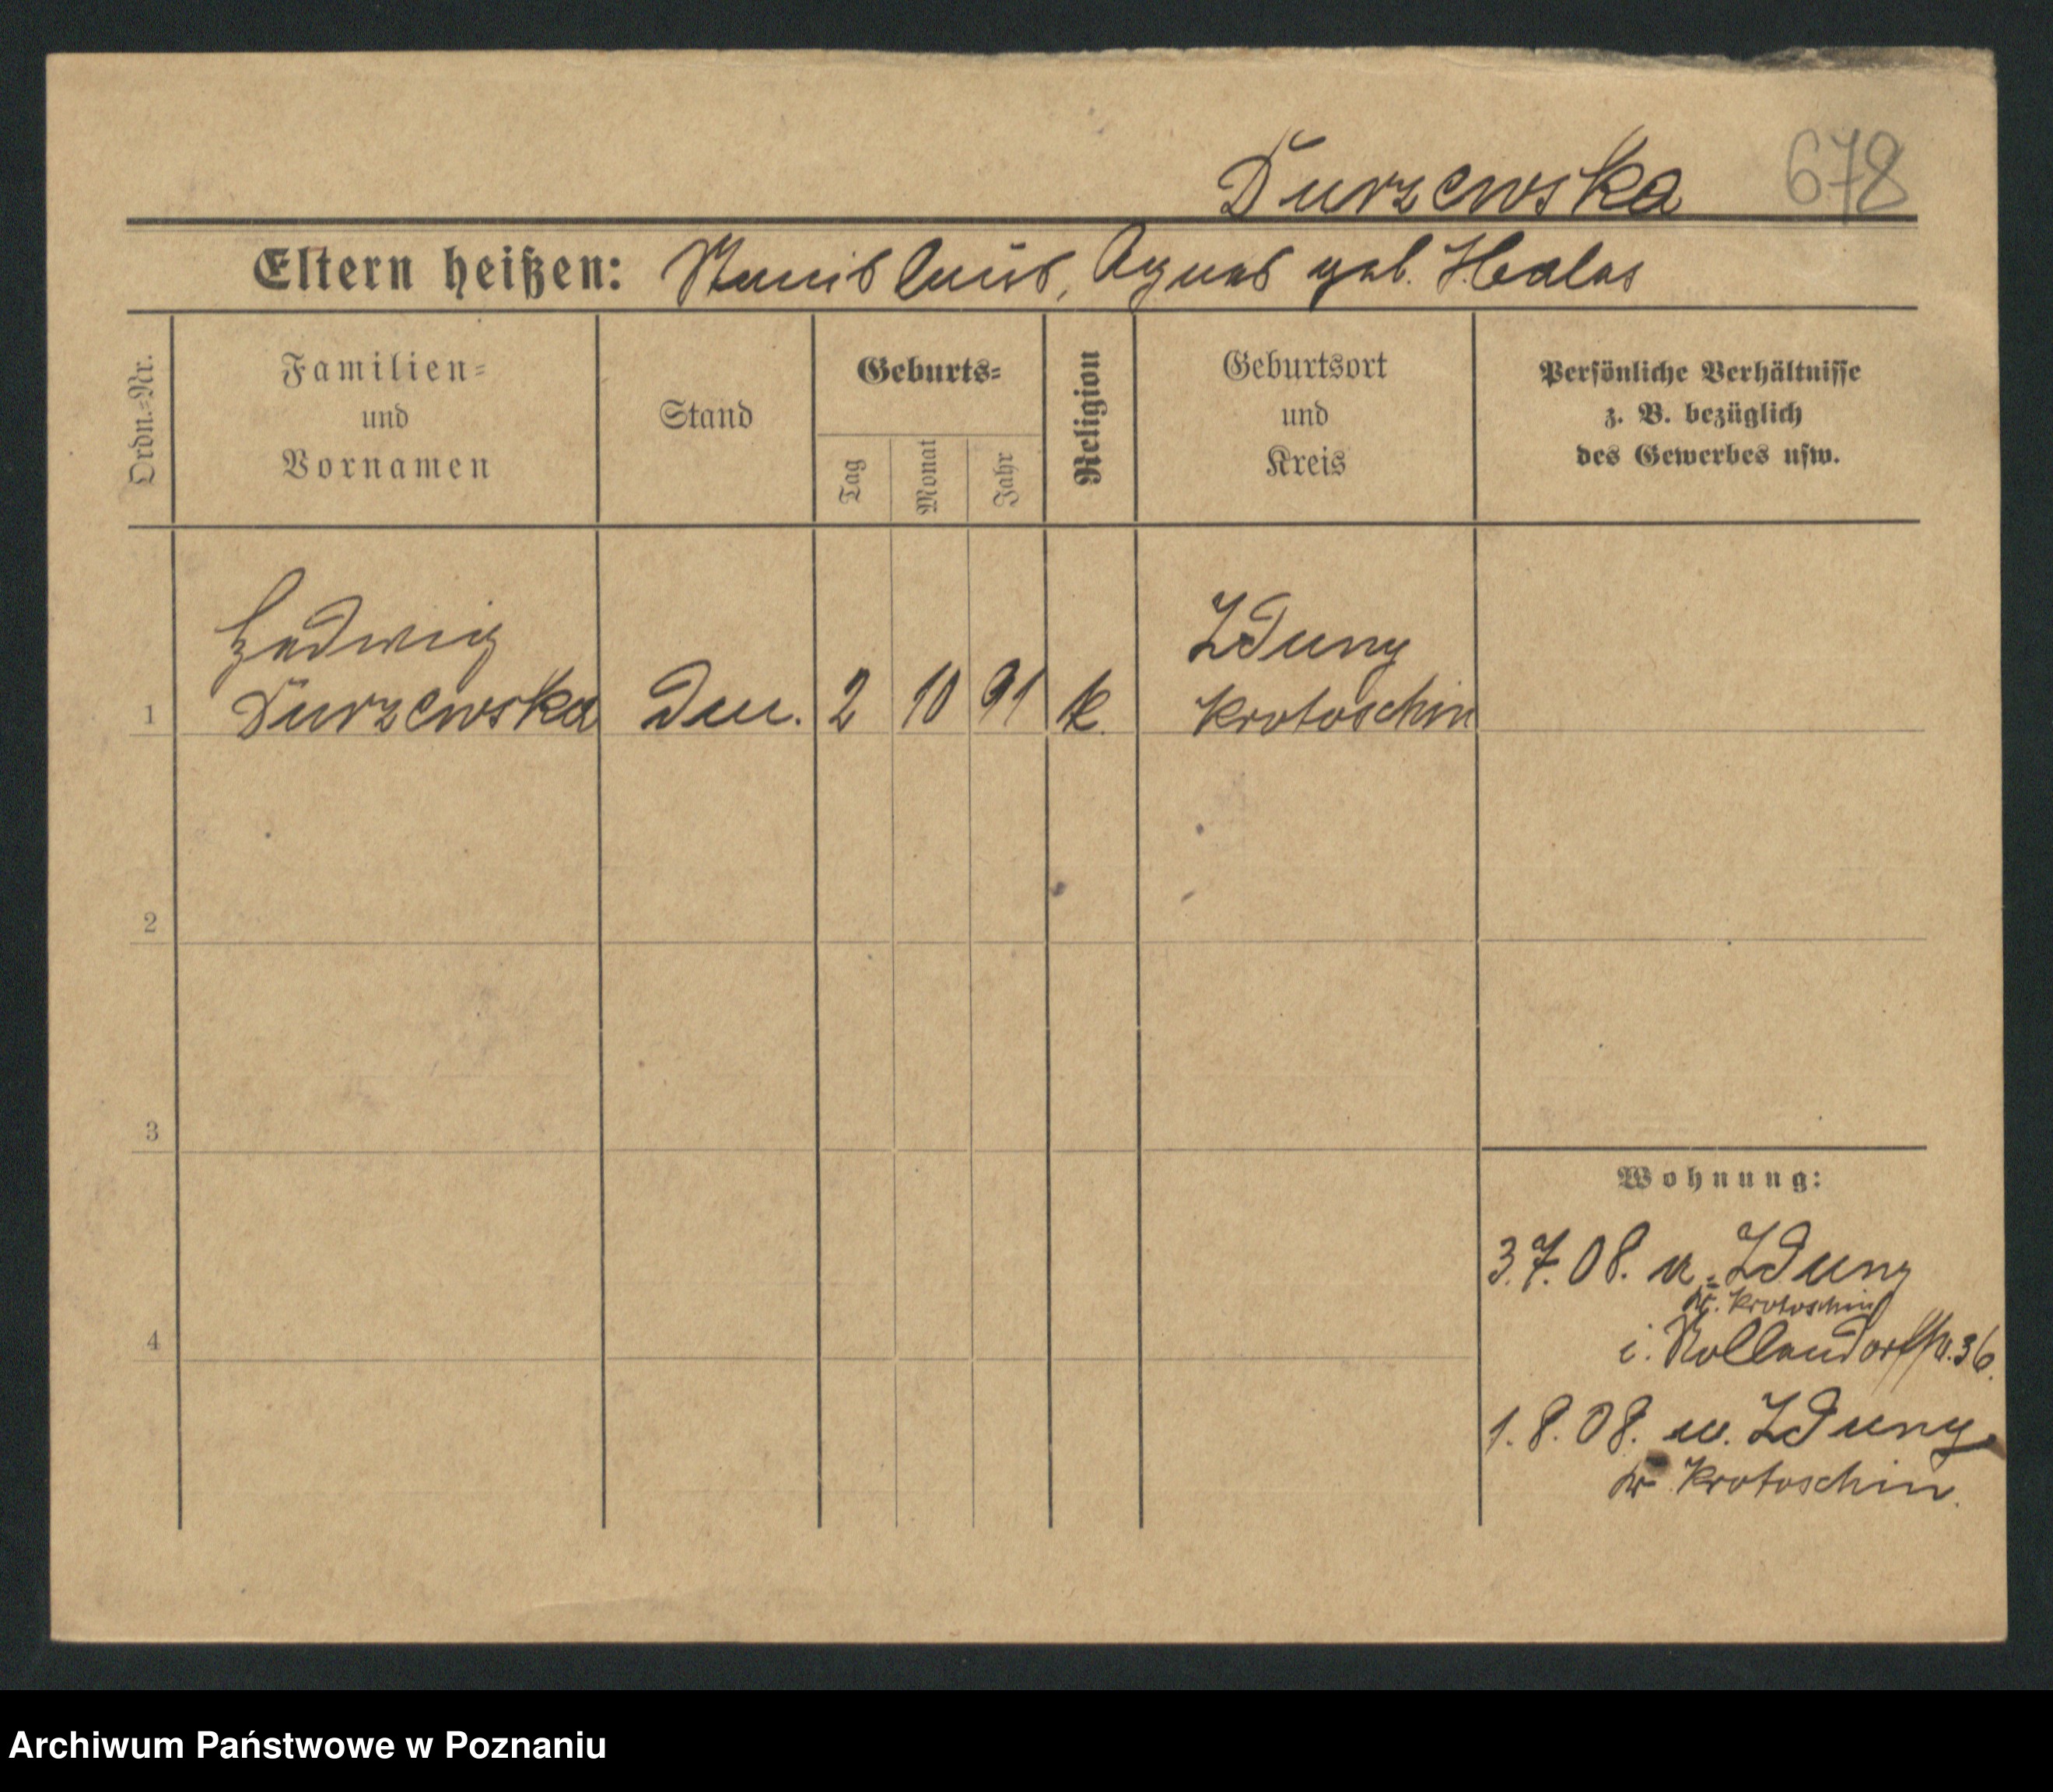 Durzewska 678
Eltern heißen: Stanislaus, Agnes geb. Halas
Ordn.-Nr.
Familien-
und
Vornamen
Stand
Geburts-
Tag
Monat
Jahr
Religion
Geburtsort
und
Kreis
Persönliche Verhältnisse
z. B. bezüglich
des Gewerbes usw.
Hedwig Zduny
1 Durzewska 2 10 91 k. Krotoschin
2
3
Wohnung:
3.7.08. Zduny
Kr. Krotoschin
4
i. Nollendorfstr. 36.
1.8.08. Zduny
Kr. Krotoschin.
Archiwum Państwowe w Poznaniu